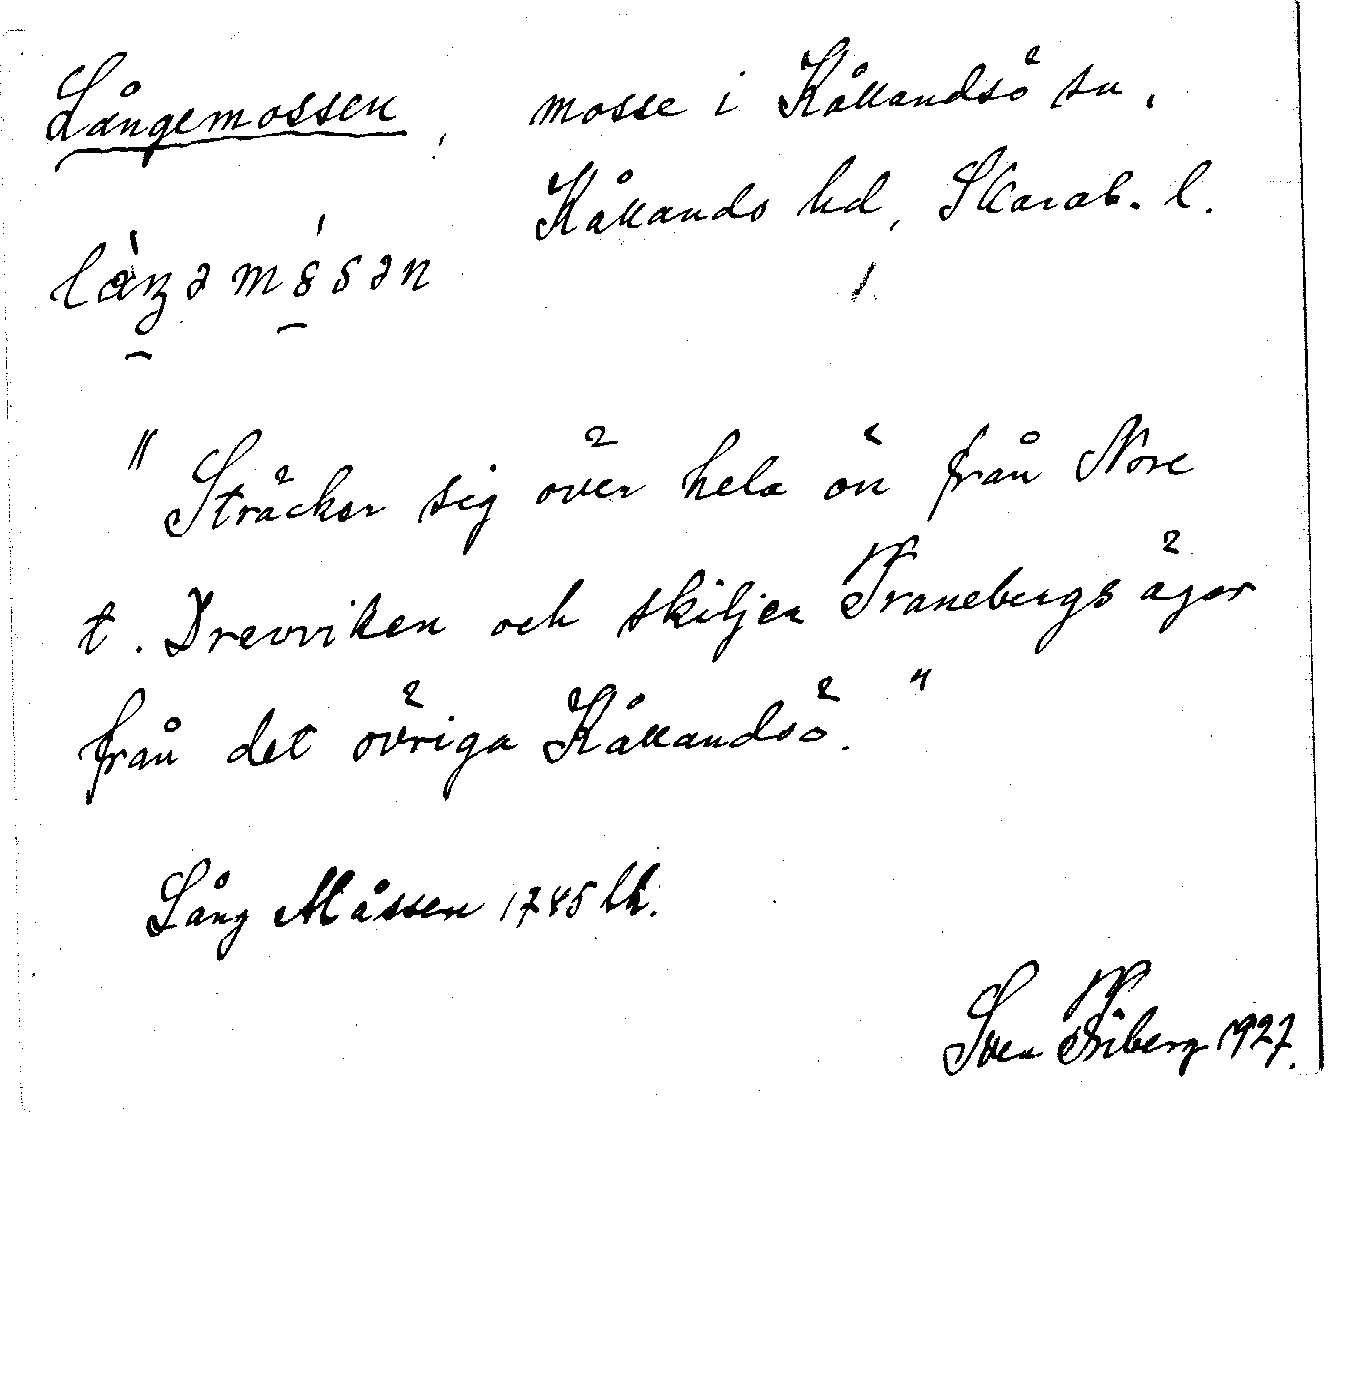 Långemossen, mosse i Kållandsö sn,
Kållands hd, Skarab. l.
"Sträcker sig över hela ön från Nore
t. Drevviken och skiljer Tranebergs ägor
från det övriga Kållandsö."
Lång Måssen 1785 lk.
Sven 1927.